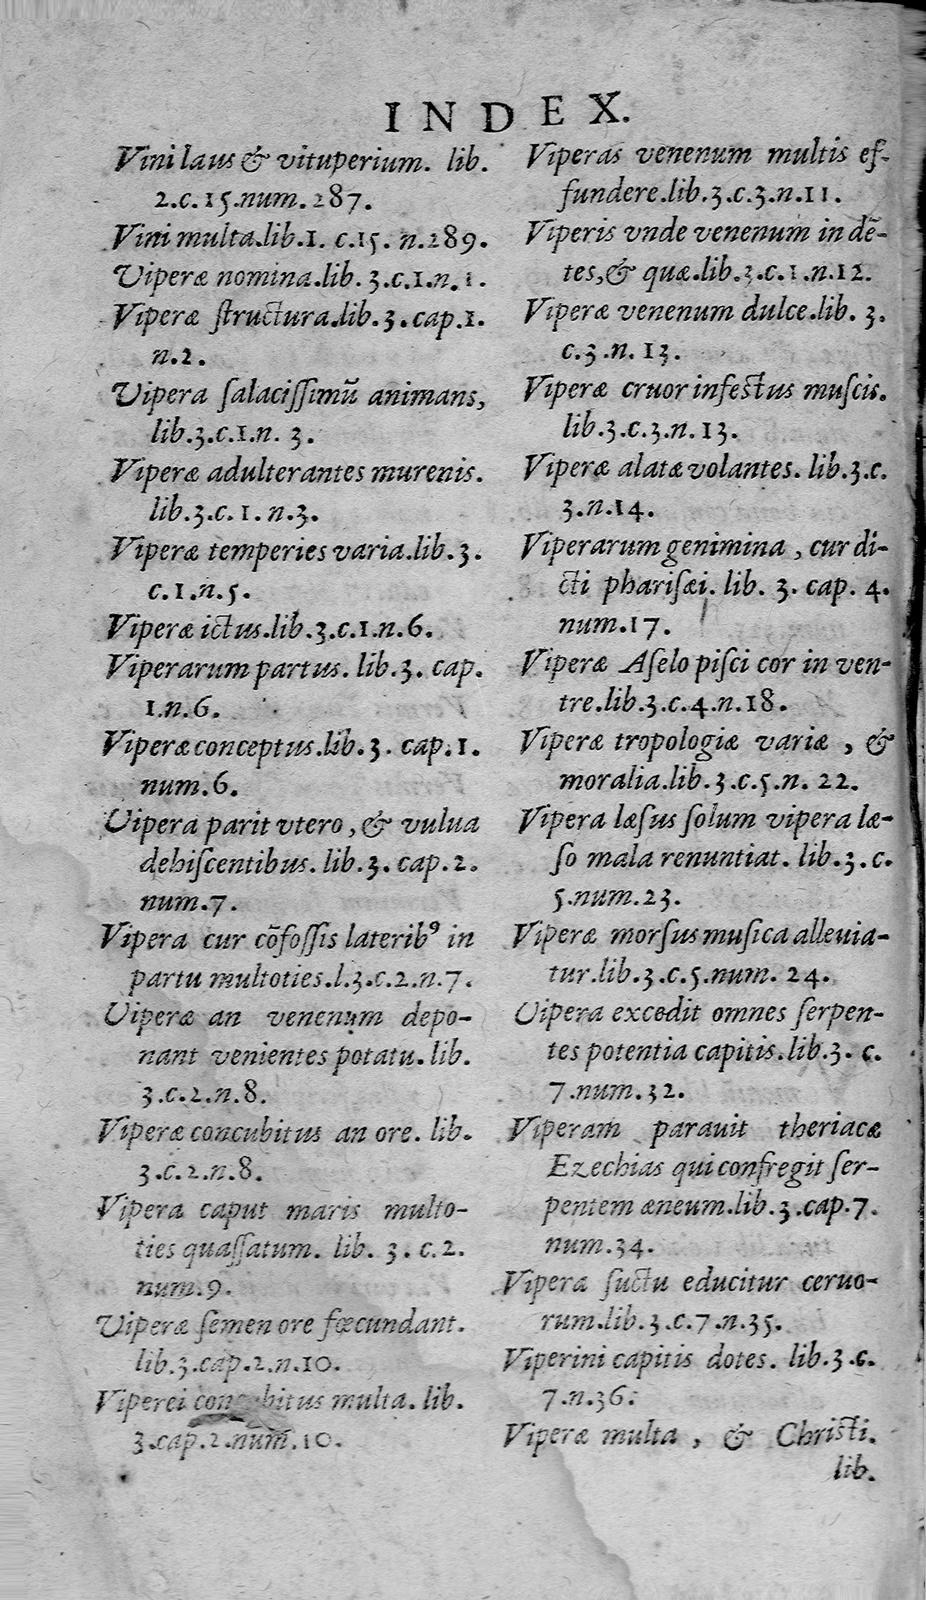 INDEX.
Vini laus & vituperium. lib.
2.c.15.num.287.
Vini multa.lib.1. c.15. n.289.
Viperæ nomina.lib. 3.c.1.n.1.
Viperæ structura.lib.3.cap.1.
n.2.
Vipera ſalaciſſimũ animans,
lib.3.c.1.n. 3.
Viperæ adulterantes murenis.
lib.3.c.1.n.3.
Viperæ temperies varia.lib.3.
c.1.n.5.
Viperæ ictus.lib.3.c.1.n.6.
Viperarum partus. lib.3. cap.
1.n.6.
Viperæ conceptus.lib.3. cap.1.
num.6.
Vipera parit vtero, & vulua
dehiſcentibus. lib.3. cap.2.
num.7.
Vipera cur cõfoſſis lateribꝰ in
partu multoties.l.3.c.2.n.7.
Viperæ an venenum depo-
nant venientes potatu. lib.
3.c.2.n.8.
Viperæ concubitus an ore. lib.
3.c.2.n.8.
Vipera caput maris multo-
ties quaſſatum. lib. 3. c.2.
num.9.
Viperæ ſemen ore fœcundant.
lib.3.cap.2.n.10.
Viperei concubitus multa. lib.
3.cap.2.num.10.
Viperas venenum multis ef-
fundere.lib.3.c.3.n.11.
Viperis vnde venenum in dẽ-
tes,& quæ.lib.3.c.1.n.12.
Viperæ venenum dulce.lib. 3.
c.3.n. 13.
Viperæ cruor infectus muſcis.
lib.3.c.3.n.13.
Viperæ alatæ volantes. lib.3.c.
3.n.14.
Viperarum genimina, cur di-
cti phariſæi. lib. 3. cap. 4.
num.17.
Viperæ Aſelo piſci cor in ven-
tre.lib.3.c.4.n.18.
Viperæ tropologiæ variæ, &
moralia.lib.3.c.5.n. 22.
Vipera læſus ſolum vipera læ-
ſo mala renuntiat. lib.3.c.
5.num.23.
Viperæ morſus muſica alleuia-
tur.lib.3.c.5.num. 24.
Vipera excedit omnes ſerpen-
tes potentia capitis.lib.3. c.
7.num.32.
Viperam parauit theriacæ
Ezechias qui confregit ſer-
pentem æneum.lib.3.cap.7.
num.34.
Vipera ſuctu educitur ceruo-
rum.lib.3.c.7.n.35.
Viperini capitis dotes. lib.3.c.
7.n.36.
Viperæ multa, & Christi.
lib.